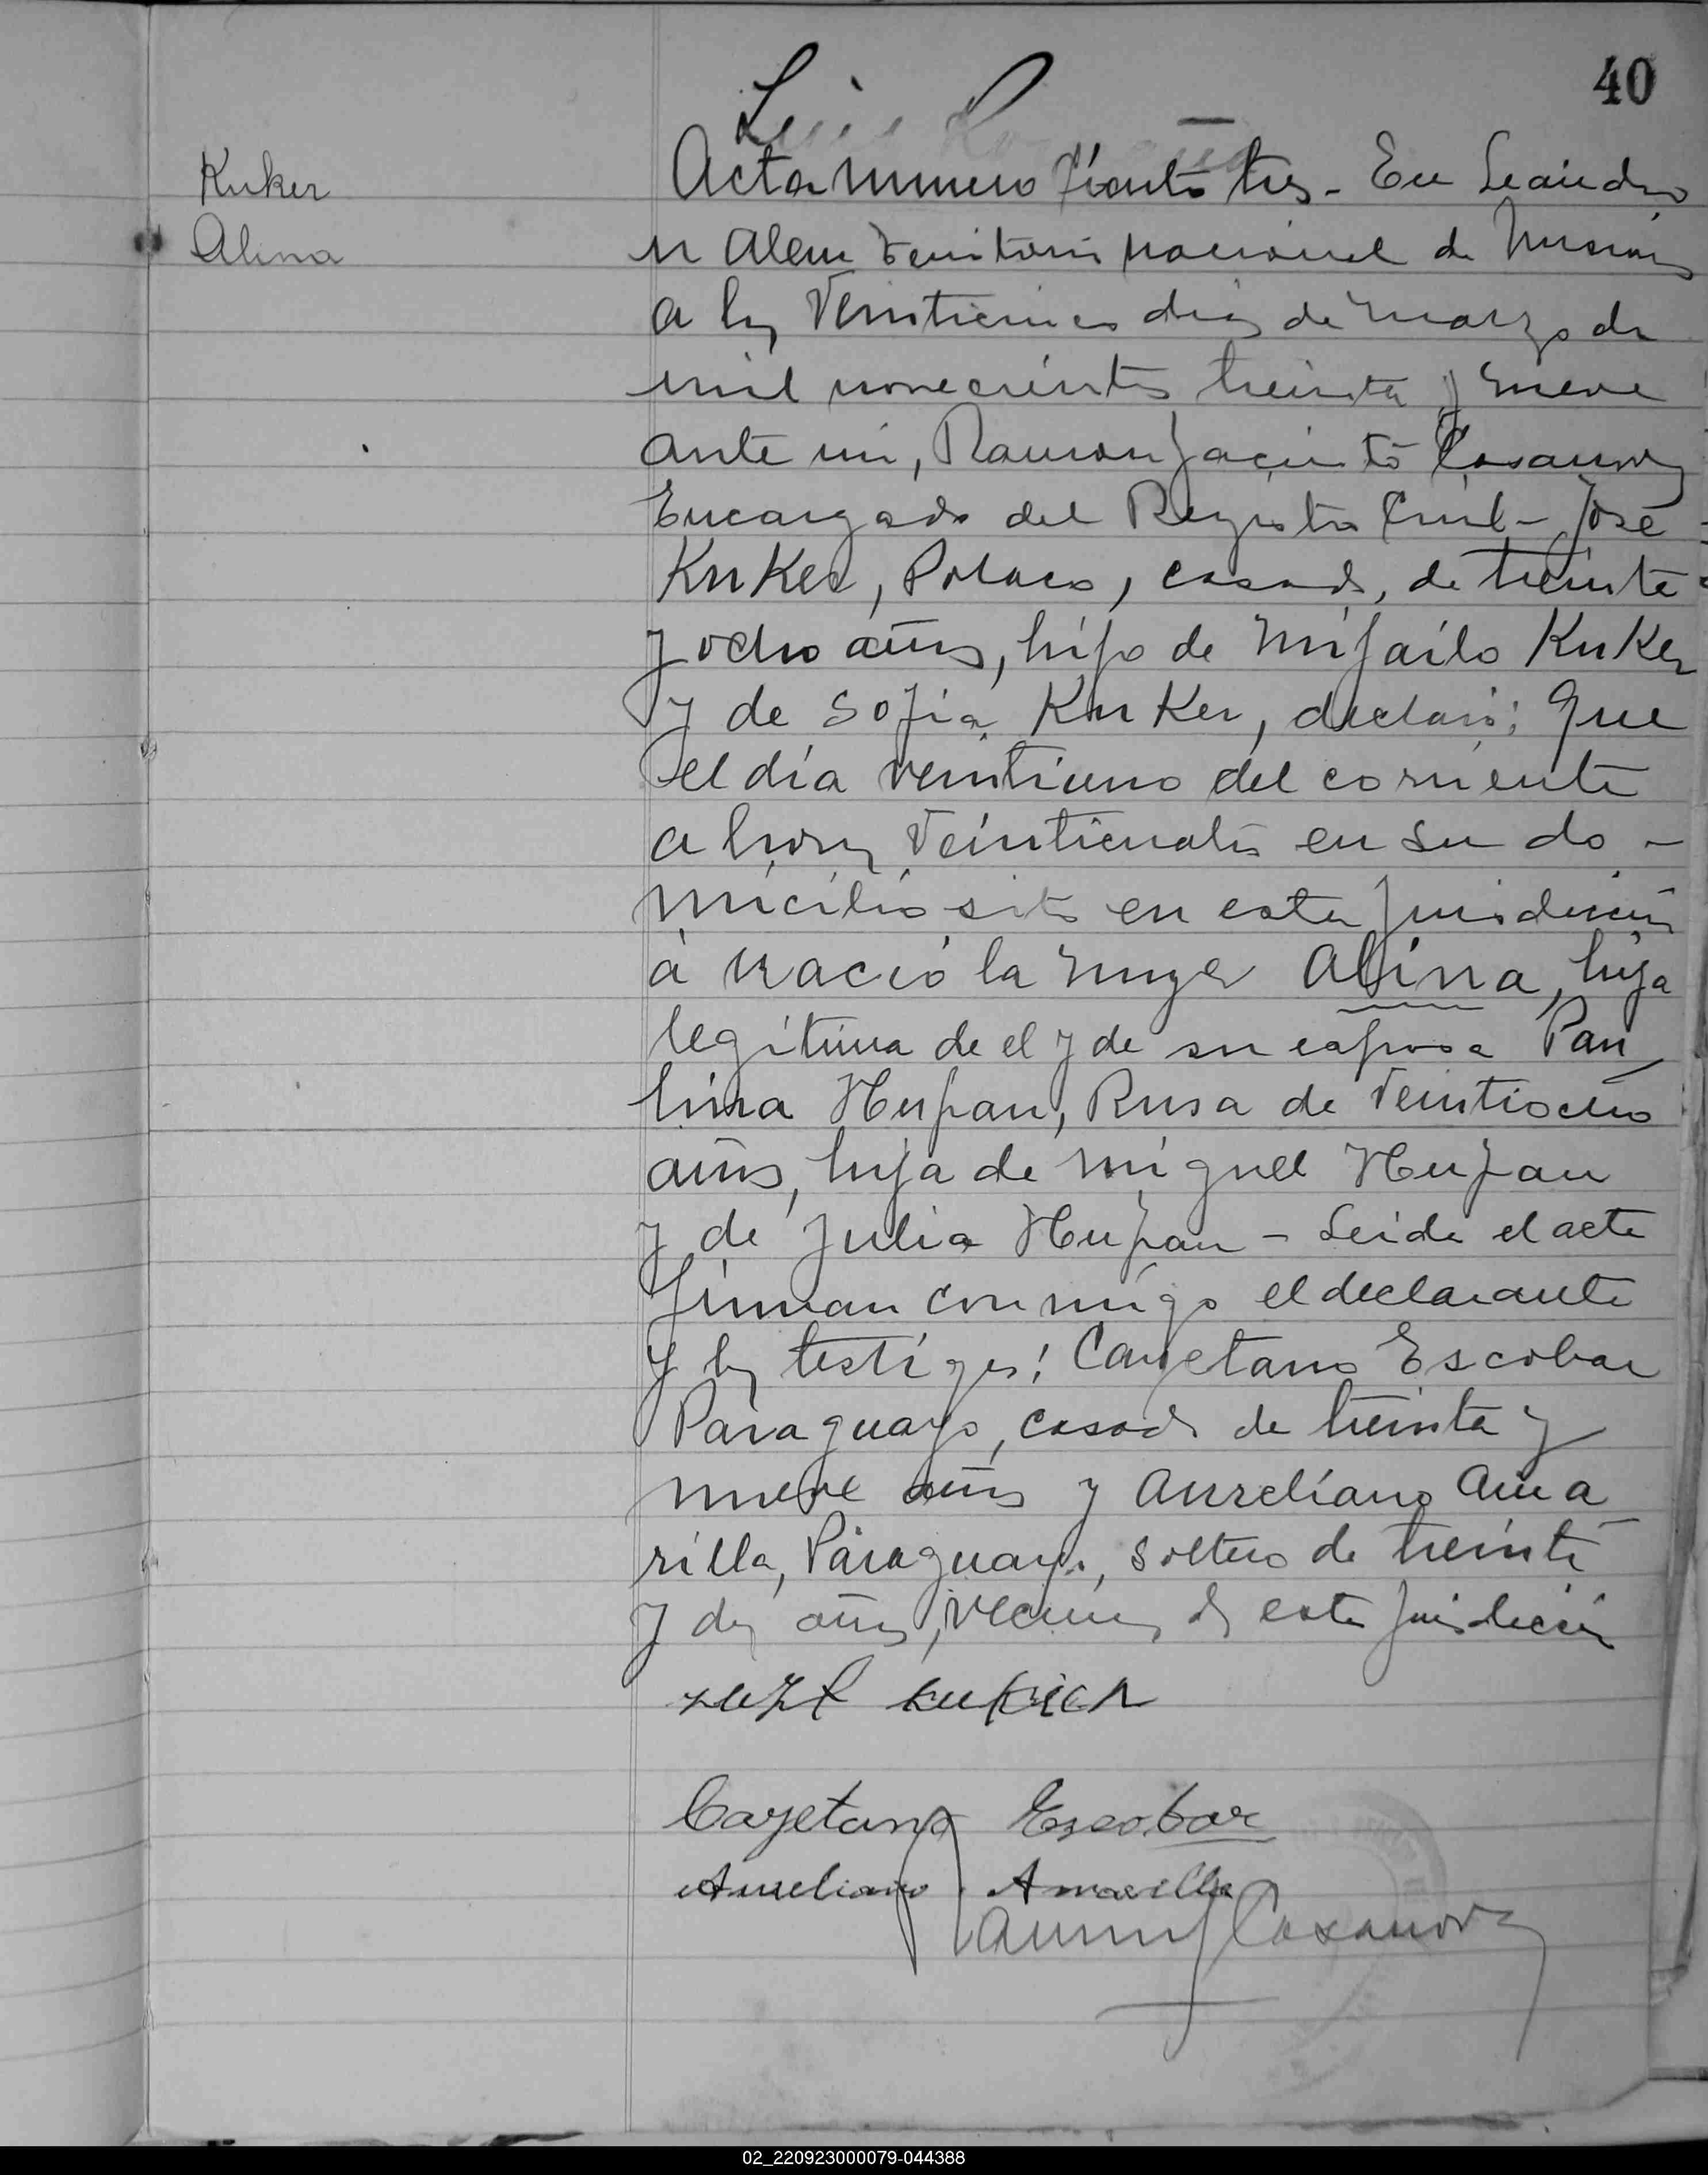 40
Luis
Kuker
Alina
Acta numero Ciento tres - En Leandro
N Alem Territorio nacional de Misiones
a los Veinticinco dias de Marzo de
mil novecientos treinta y nueve
ante mi, Ramon Jacinto Casanova
Encargado del Registro Civil - José
Kuker, Polaco, casado, de treinta
y ocho años, hijo de Mijailo Kuker
y de Sofia Kuker, declaró: Que
el día veintiuno del corriente
a horas Veinticuatro en su do -
micilio sito en esta Jurisdicción
a nació la mujer Alina, hija
legítima de el y de su esposa Pau
lina Hupan, Rusa de Veintiocho
años, hija de Miguel Hupan
y de Julia Hupan - Leida el acta
firman conmigo el declarante
y los testigos: Cayetano Escobar
Paraguayo, casado de treinta y
nueve años y Aureliano Ama
rilla, Paraguayo, soltero de treinta
y dos años, vecinos de esta Jurisdicción
Cayetano Escobar
Aureliano Amarilla
Ramon J Casanova
02_220923000079-044388